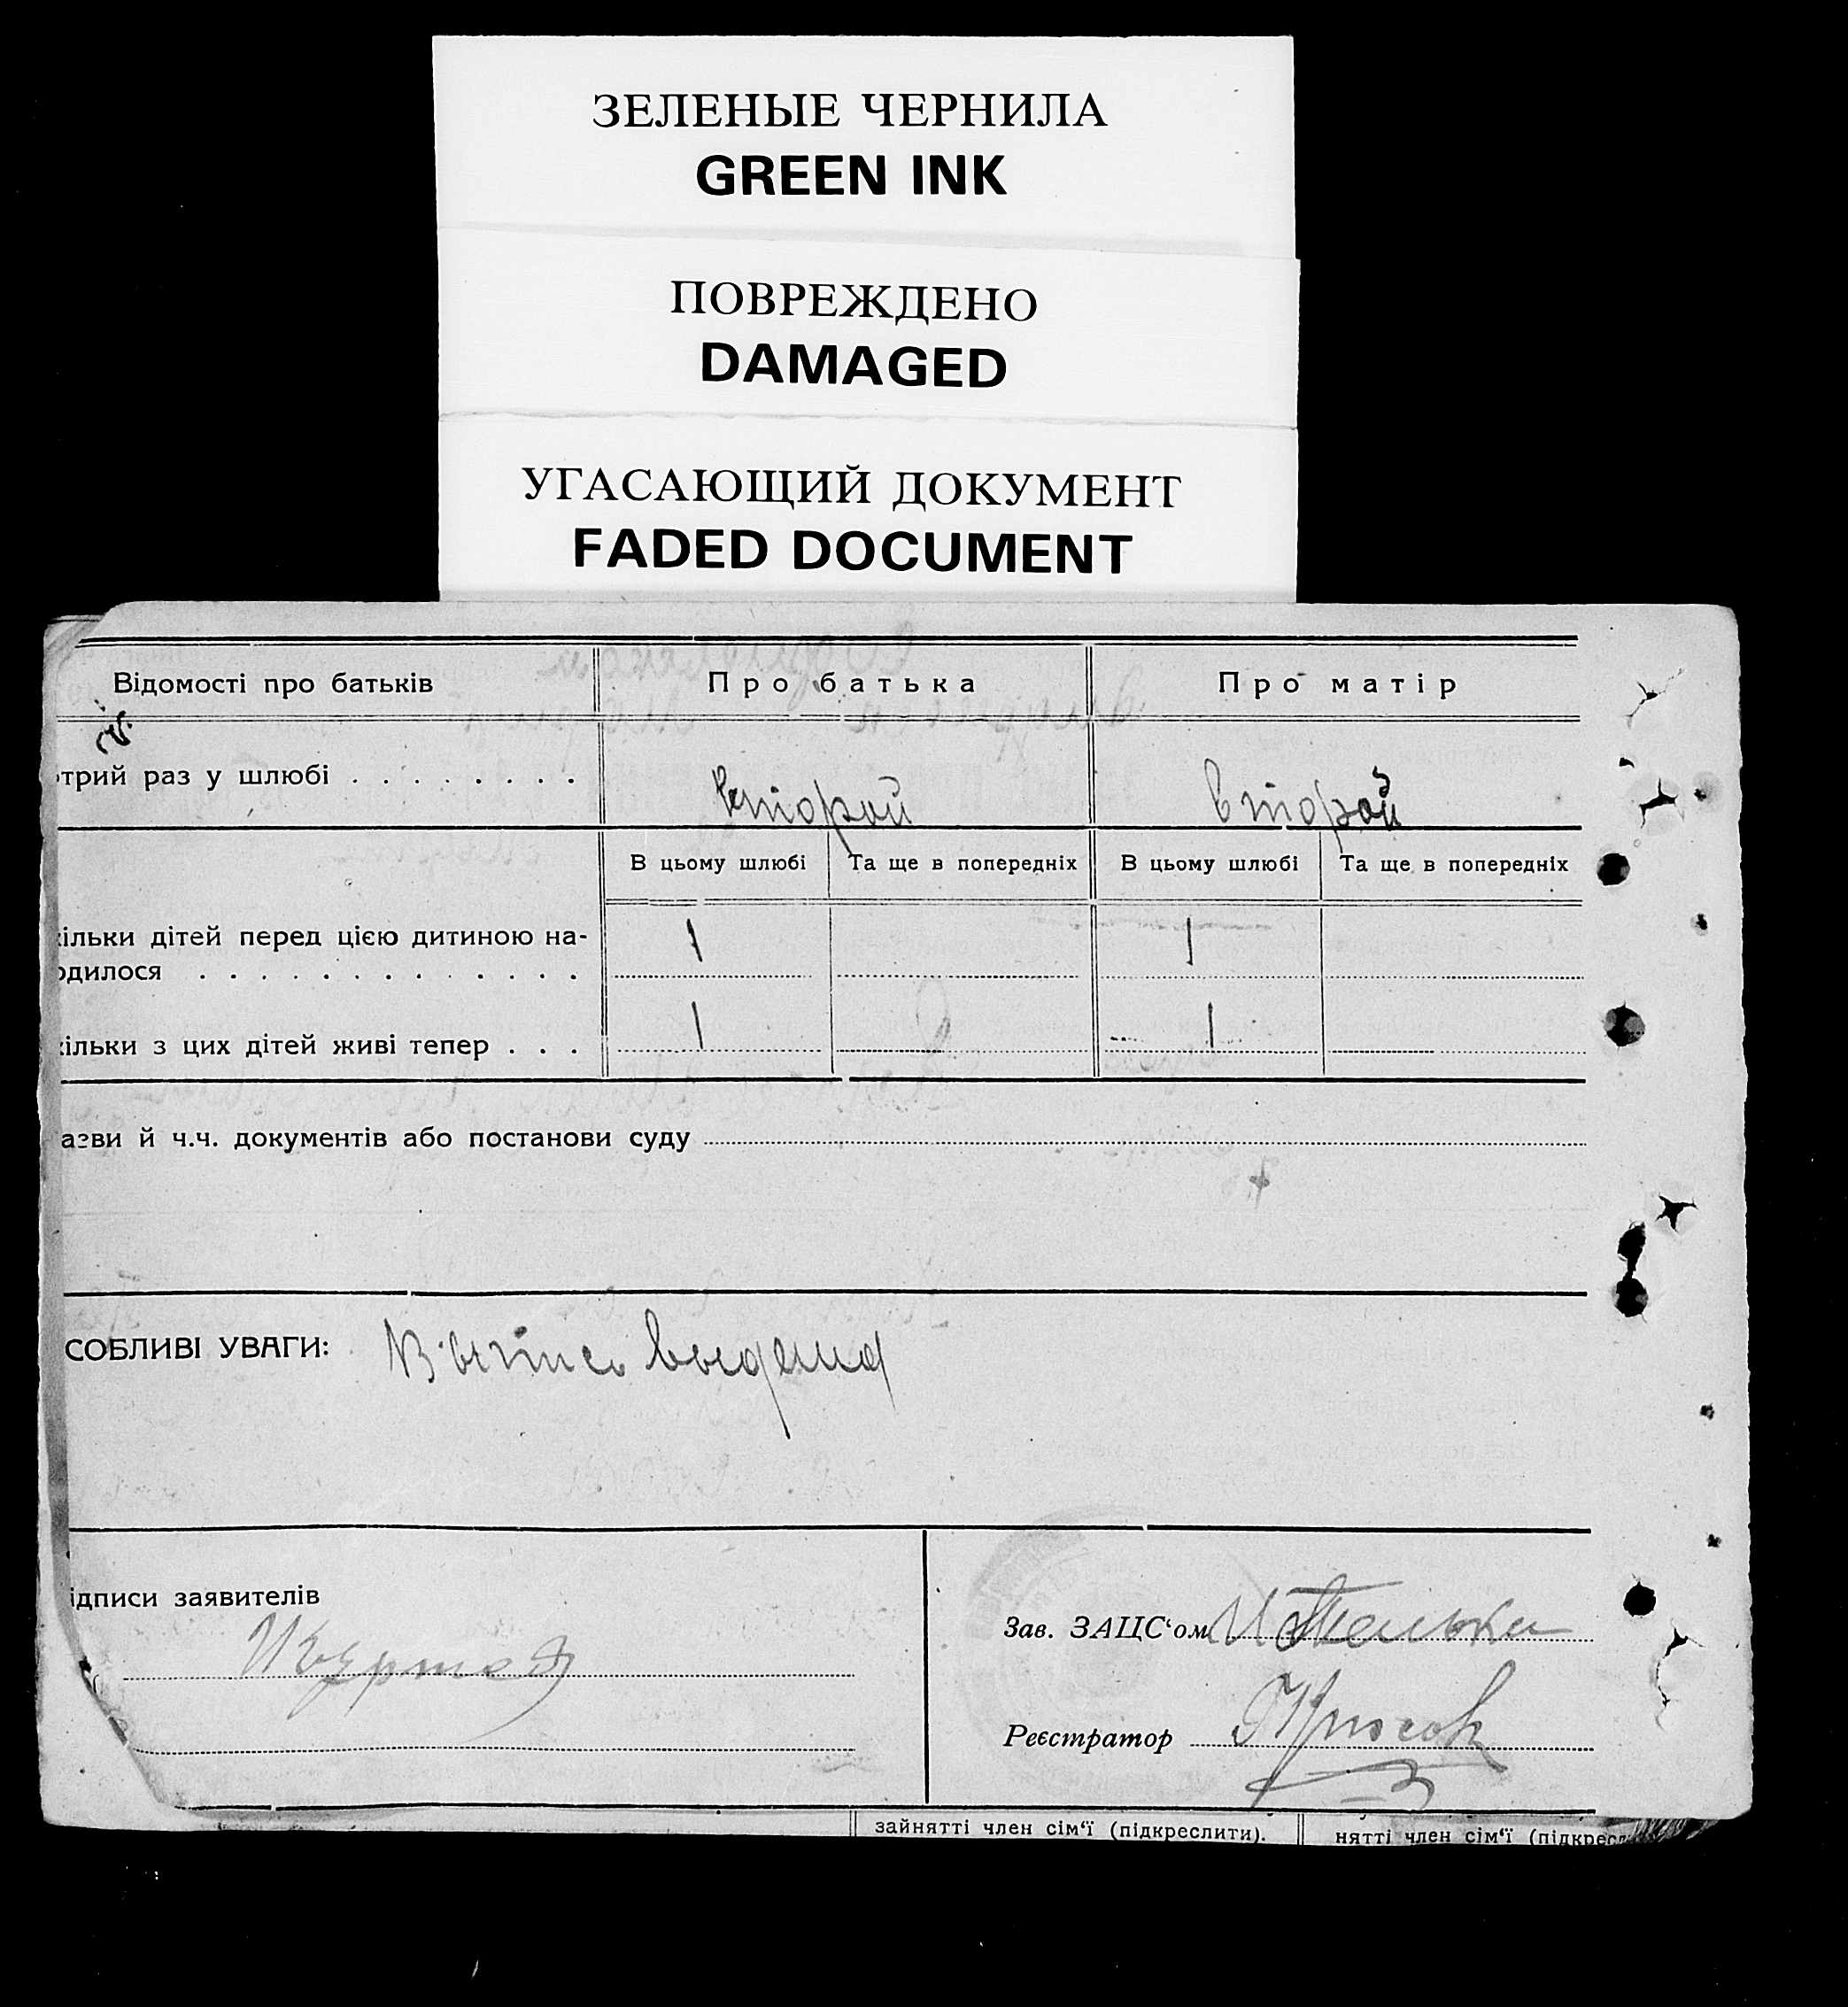 ЗЕЛЕНЫЕ ЧЕРНИЛА
GREEN INK
ПОВРЕЖДЕНО
DAMAGED
УГАСАЮЩИЙ ДОКУМЕНТ
FADED DOCUMENT
Відомості про батьків Про батька Про матір
трий раз у шлюбі . . . . . . . . второй второй
В цьому шлюбі Та ще в попередніх В цьому шлюбі Та ще в попередніх
ільки дітей перед цією дитиною на-
одилося . . . . . . . . . . . . . . 1 1
ільки з цих дітей живі тепер . . . 1 1
азви й ч.ч. документів або постанови суду
СОБЛИВІ УВАГИ: Выпись выдана
ідписи заявителів
Зав. ЗАЦС‘ом
Реєстратор
зайнятті член сім‘ї (підкреслити). нятті член сім‘ї (підкресл